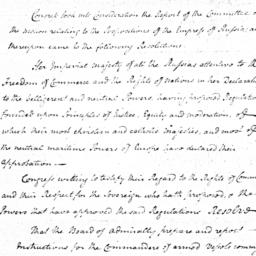 Congress took into Consideration the Report of the Committee on
the motion relating to the Propositions of the Empress of Russia, and
thereupon came to the following Resolutions.
Her Imperial Majesty of all the Russias attentive to the
Freedom of Commerce and the Rights of Nations in her Declaration
to the belligerent and neutral Powers, having proposed Regulations
founded upon Principles of Justice, Equity and moderation, of
which their most christian and catholic majesties, and most of
the neutral maritime Powers of Europe have declared their
approbation —
Congress willing to testify their Regard to the Rights of Commerce
and their Respect for the Sovereign who hath proposed, & the
Powers that have approved the said Regulations Resolved
That the Board of admiralty prepare and report
Instructions for the Commanders of armed vessels